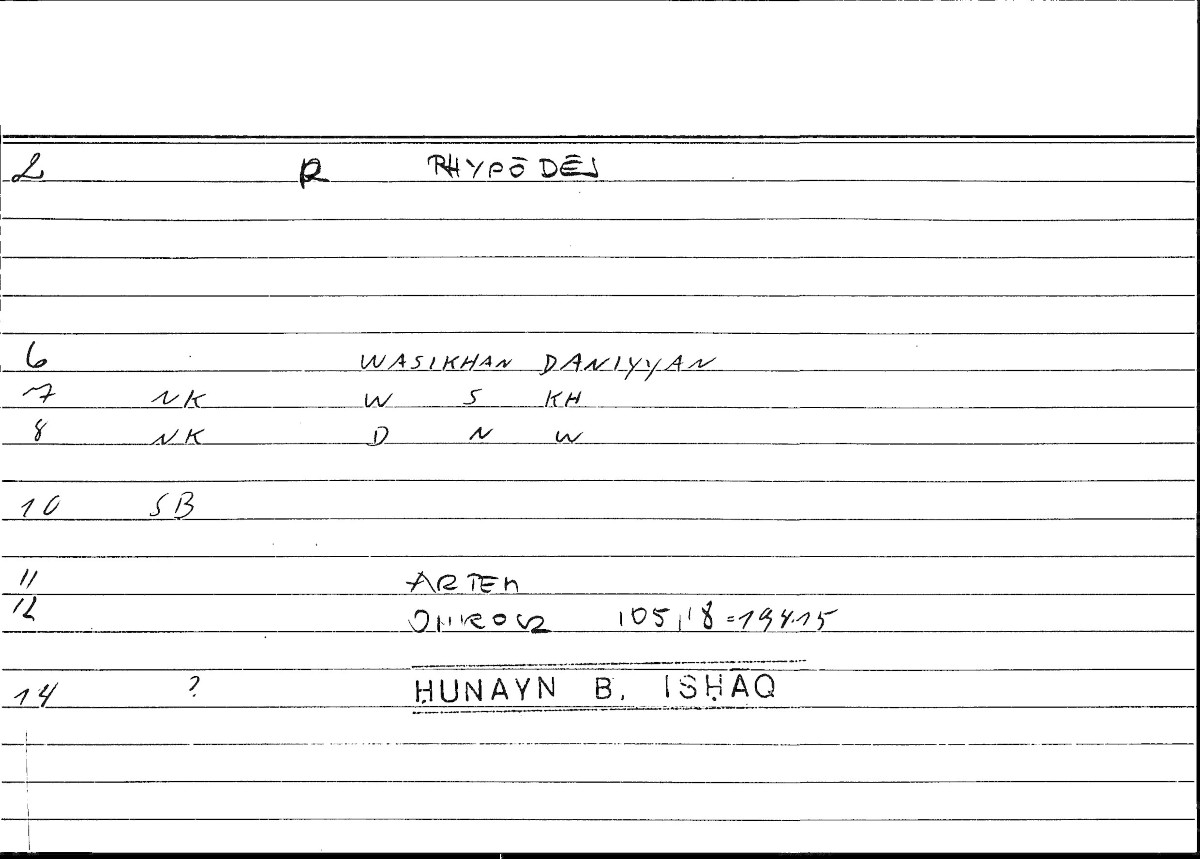 2 R RHYPŌDĒS
6 WASIKHAN DANIYYAN
7 NK W S KH
8 NK D N W
10 SB
11 ARTEM
12 ONIROCR 105,18=194.15
14 ? ḤUNAYN B. ISḤĀQ